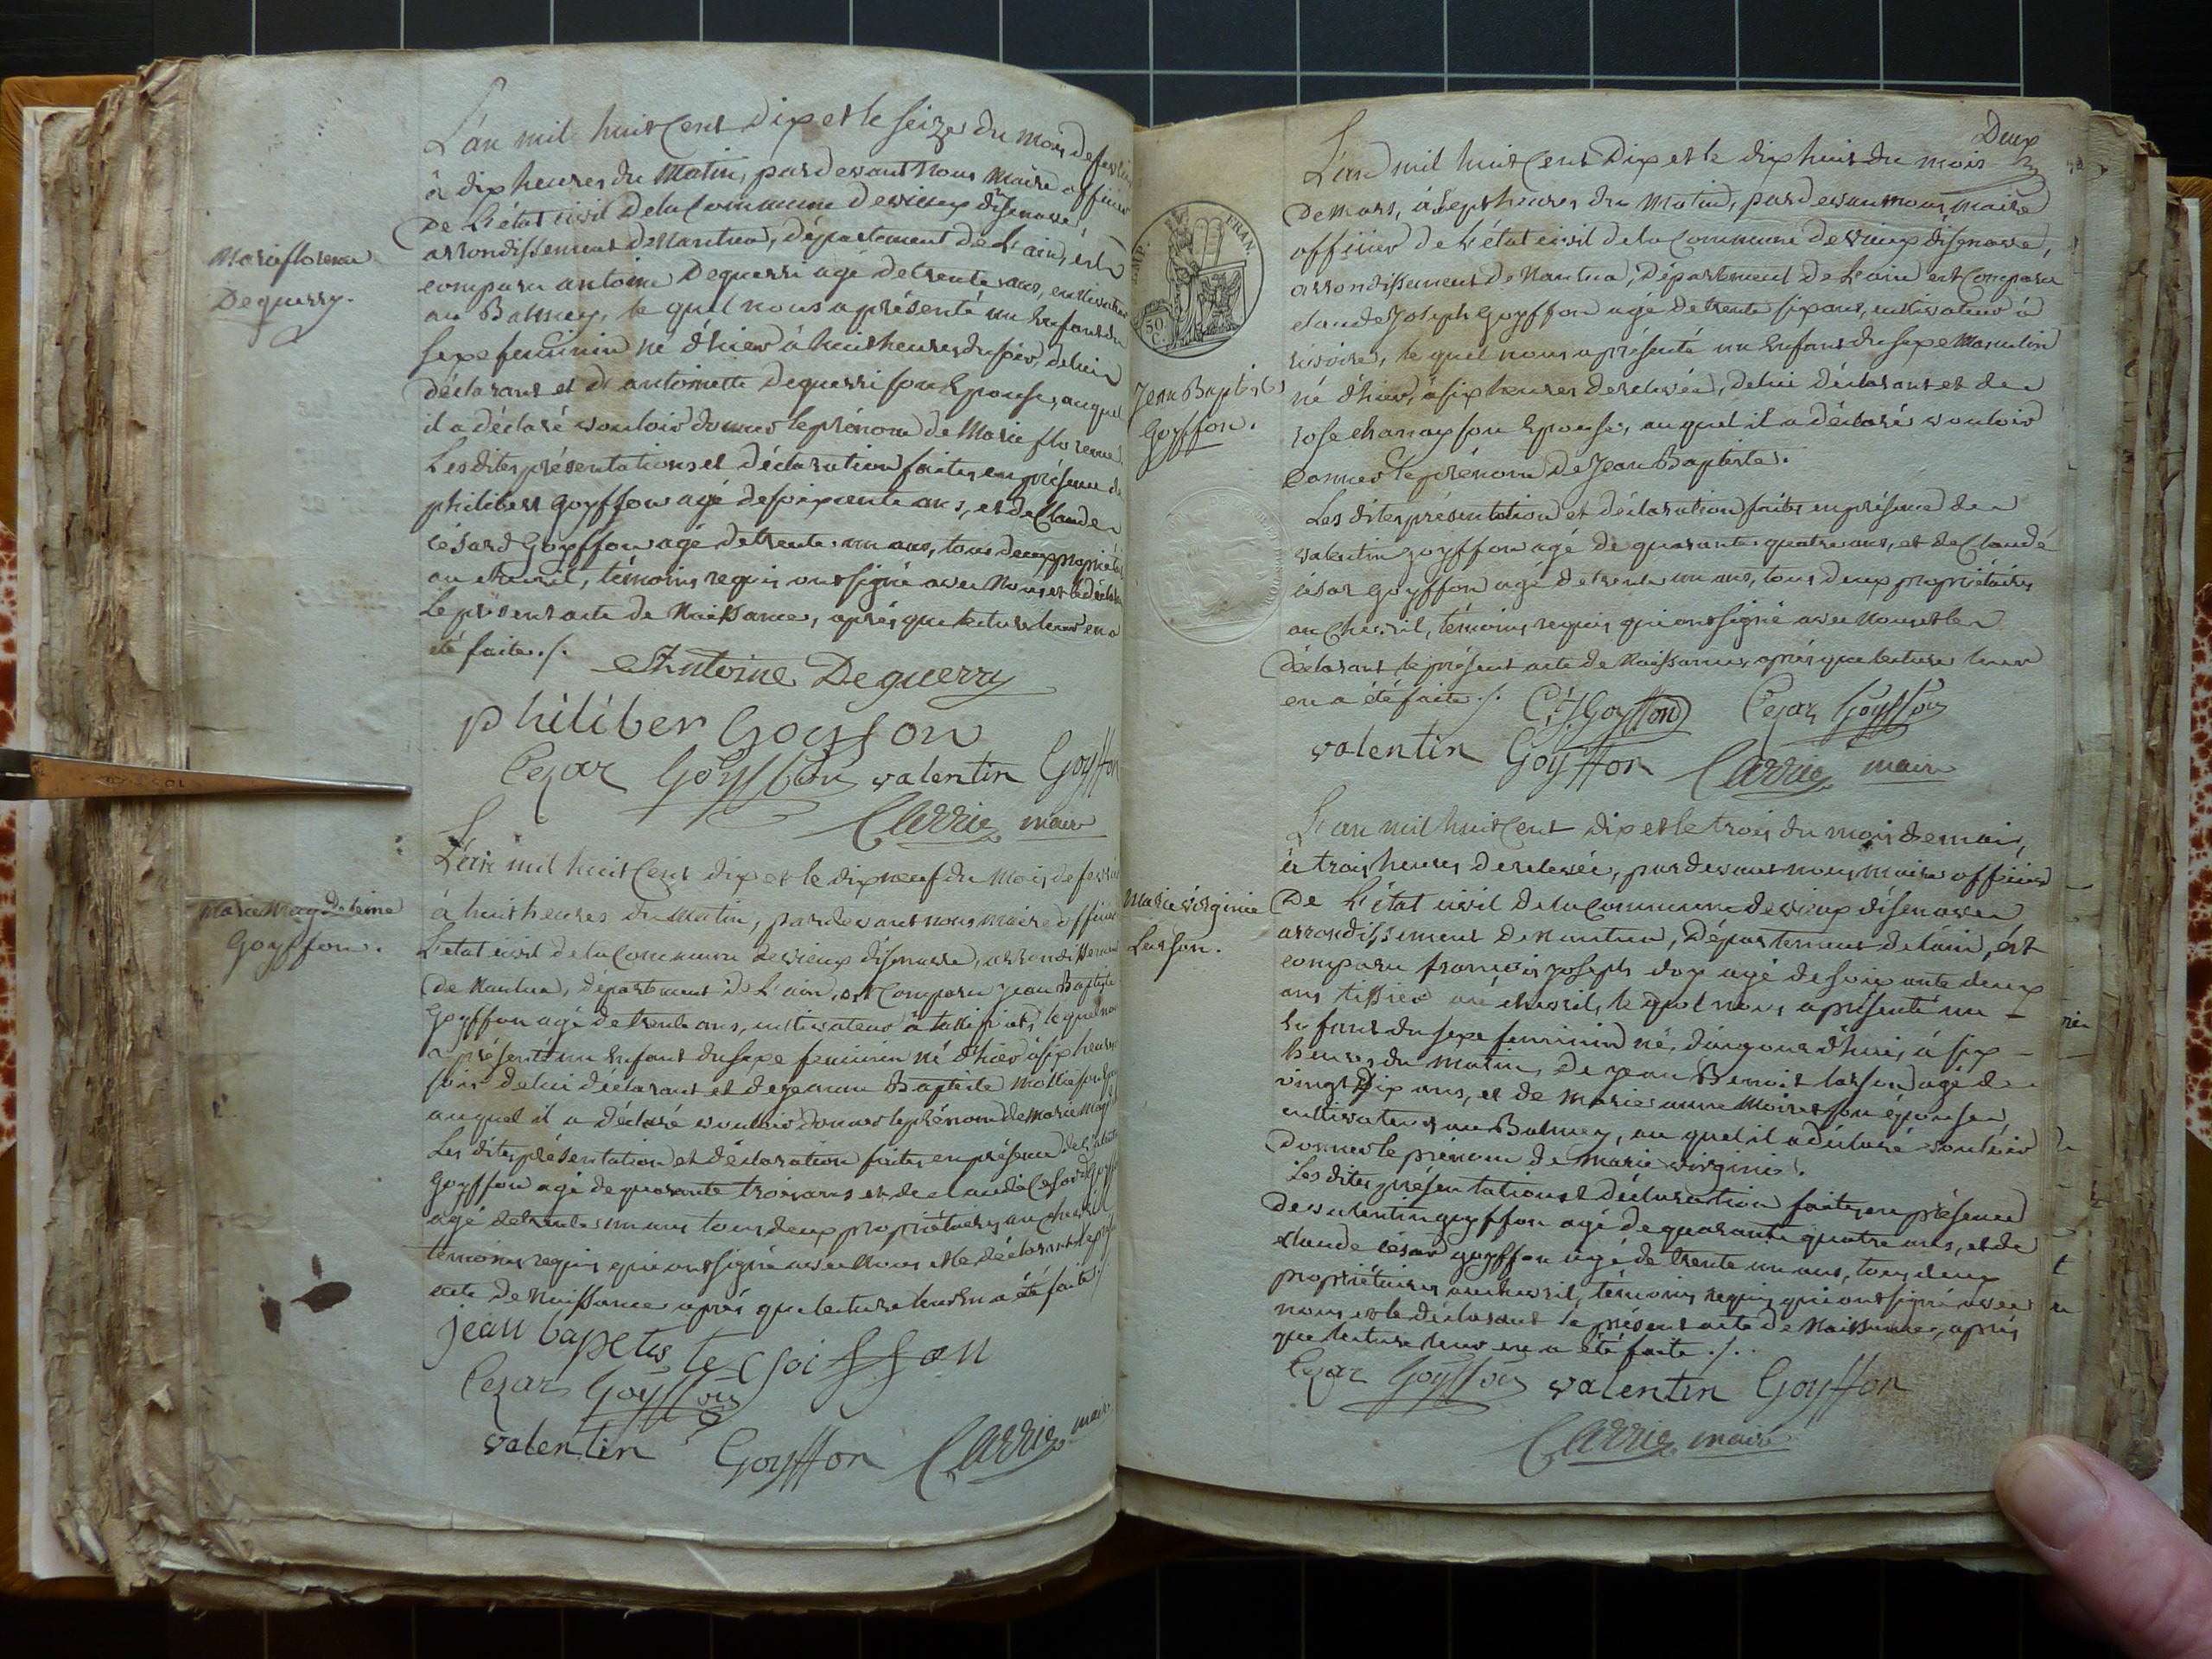 L'an mil huit Cent Dix et le seize du mois de fevrier
à dix heures du Matin, pardevant Nous Maire officier
De L'état civil De la Commune de vieux d'isenave,
arrondissement de Nantua, département de L'ain, est
comparu antoine Deguerri agé de trente ans, cultivateur
au Balmey, le quel nous a présenté un Enfant du
sexe feminin né d'hier à huit heures du soir, de lui
déclarant et d'antoinette Deguerri son Epouse, auquel
il a déclaré vouloir donner le prénom de Marie
Les dites présentations et déclaration faites en présence de
philibert Goyffon agé de soixante ans, et de Claude
césard Goyffon agé de trente un ans, tous deux propriétaires
au chevril, témoins requis ont signé avec Nous et le déclarant
Le présent acte de Naissance, après que lecture leur en a
été faite ./.
Marie
Deguerry.
Antoine Deguerry
philiber Goyfon
Cezar Goyffon valentin Goyffon
Carrier maire
L'an mil huit Cent dix et le dix neuf du Mois de fevrier
à huit heures du Matin, pardevant nous maire officier
L'etat civil de la Commune de vieux d'isenave, arrondissement
De Nantua, département de L'ain, est Comparu jean Baptiste
Goyffon agé de trente ans, cultivateur à le quel nous
a présenté un Enfant du sexe feminin né d'hier à six heures
soir de lui déclarant et de jeanne Baptiste
auquel il a déclaré vouloir donner le prénom de Marie Magd
Les dites présentation et déclaration faites en présence de valentin
Goyffon agé de quarante trois ans et de claude Cesard goyffon
agé de trente un ans tous deux propriétaires au chevril
temoins requis qui ont signé avec Nous et le déclarant le présent
acte de Naissance après que lecture leur en a été faite ./.
Marie Magdeleine
Goyffon.
jean bapetis te Goiffon
Cezar Goyffon
valentin Goyffon Carrier maire
Deux
L'an mil huit Cent Dix et le dix huit du mois
De Mars, à sept heures du Matin, pardevant nous, maire
officier de l'état civil de la Commune de vieux d'isenave,
arrondissement de Nantua, Département de L'ain est Comparu
claude Joseph Goyffon agé de trente six ans, cultivateur à
le quel nous a présenté un Enfant du sexe Masculin
né d'hier, à six heures de relevée, de lui déclarant et de
rose chanay son Epouse, auquel il a déclaré vouloir
donner le prénom de Jean Baptiste.
Les dites présentation et déclaration faites en présence de
valentin goyffon agé de quarante quatre ans, et de Claude
césar goyffon agé de trente un ans, tous deux propriétaires
au Chevril, témoins requis qui ont signé avec Nous et le
déclarant le présent acte de Naissance, après que lecture leur
en a été faite ./.
EMP. FRAN.
50 C.
Jean Baptiste
Goyffon.
C. J. Goyffon Cezar Goyffon
valentin Goyffon Carrier maire
L'an mil huit Cent dix et le trois du mois de mai,
à trois heures de relevée, pardevant nous, maire officier
De L'état civil de la Commune de vieux d'isenave
arrondissement de nantua, Département de l'ain, est
comparu francois joseph agé de soixante deux
ans tissier au chevril, le quel nous a présenté un
Enfant du sexe feminin né, d'aujourd'hui, à six
heures du matin, De jean Benoit larson agé de
vingt dix ans, et de Marie anne Moiret son épouse,
cultivateurs au Balmey, au quel il a déclaré vouloir
donner le prénom de marie virginie.
Les dites présentations et déclaration faites en présence
de valentin goyffon agé de quarante quatre ans, et de
claude césar goyffon agé de trente un ans, tous deux
propriétaires au chevril, témoins requis qui ont signé avec
nous et le déclarant le présent acte de Naissance, après
que lecture leur en a été faite ./.
Marie virginie
Larson.
Cezar Goyffon valentin Goyffon
Carrier maire